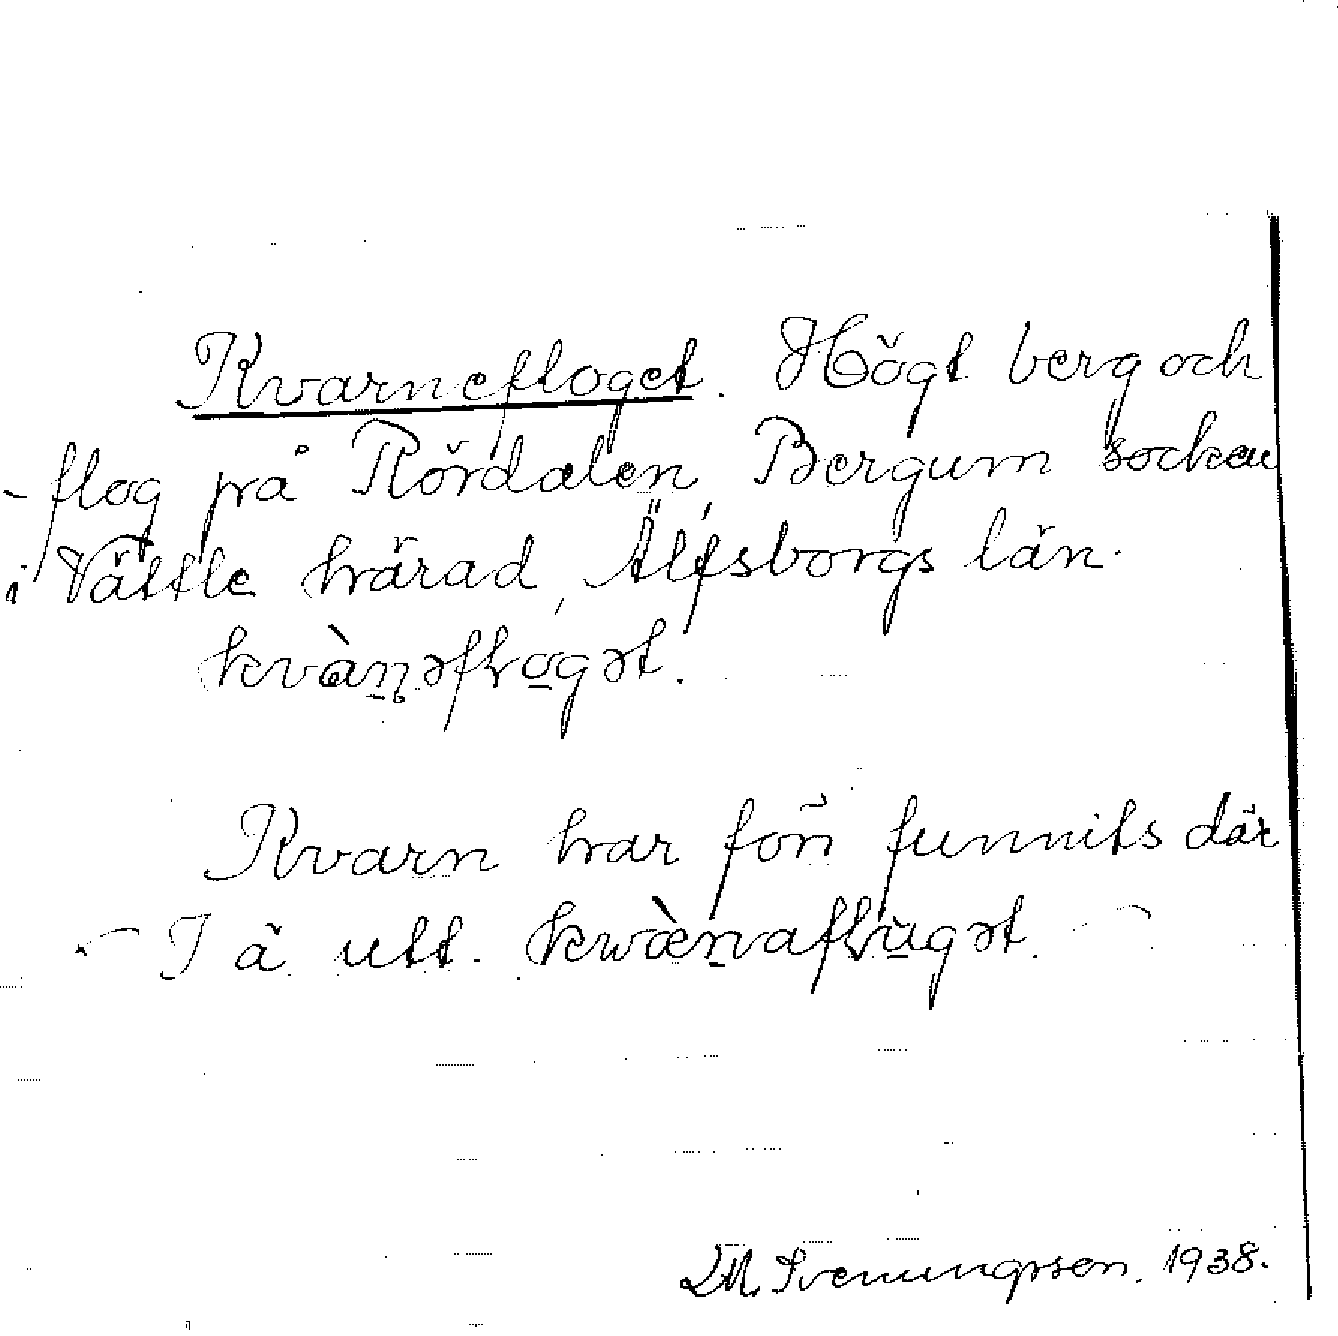 Kvarnefloget. Högt berg och
-flog på Rördalen, Bergum socken
i Vättle härad, Älfsborgs län.
kvàṉəfḻo̱gət.
Kvarn har förr funnits där
I ä utt. kwæ̀ṉaflu̱gət.
Svenungsson. 1938.